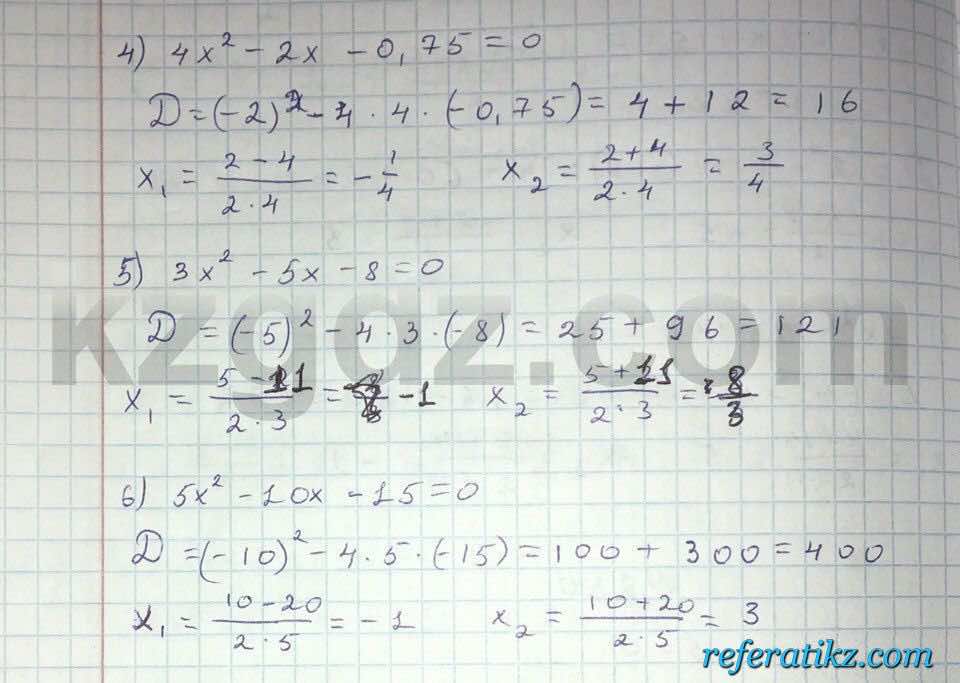 4) 4x² - 2x - 0,75 = 0
D = (-2)² - 4 · 4 · (-0,75) = 4 + 12 = 16
x₁ = (2 - 4)/(2 · 4) = -1/4 x₂ = (2 + 4)/(2 · 4) = 3/4
5) 3x² - 5x - 8 = 0
kzgdz.com
D = (-5)² - 4 · 3 · (-8) = 25 + 96 = 121
x₁ = (5 - 11)/(2 · 3) = -1 x₂ = (5 + 11)/(2 · 3) = 8/3
6) 5x² - 10x - 15 = 0
D = (-10)² - 4 · 5 · (-15) = 100 + 300 = 400
x₁ = (10 - 20)/(2 · 5) = -1 x₂ = (10 + 20)/(2 · 5) = 3
referatikz.com